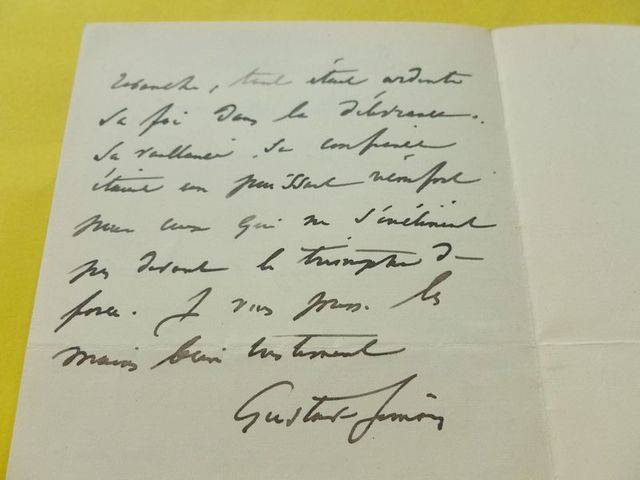 revanche, tant était ardente
sa foi dans la délivrance.
Sa vaillance, sa confiance
étaient un puissant réconfort
pour ceux qui ne s'inclinent
pas devant le triomphe de
force. Je vous presse les
mains bien tristement
Gustave Simon